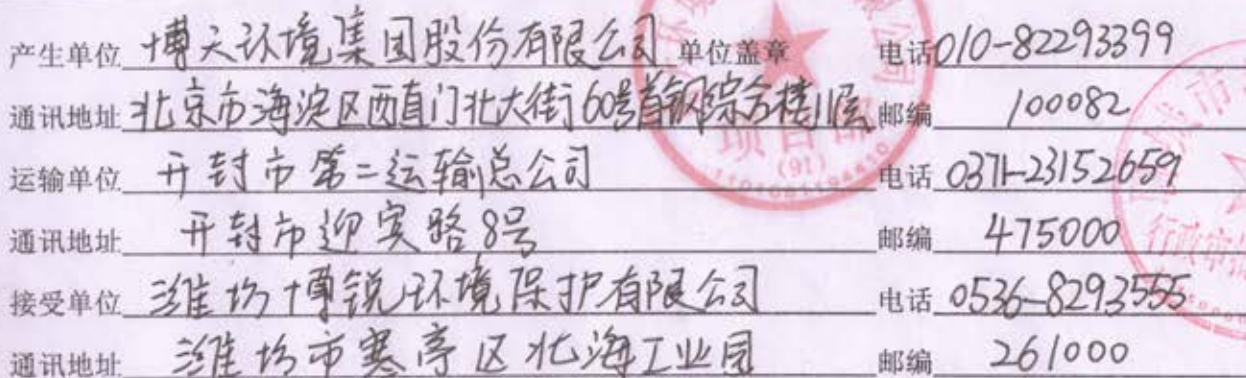 产生单位 博天环境集团股份有限公司 单位盖章 电话 010-82293399
通讯地址 北京市海淀区西直门北大街60号首钢综合楼11层 邮编 100082
运输单位 开封市第二运输总公司 电话 0371-23152659
通讯地址 开封市迎宾路8号 邮编 475000
接受单位 潍坊博锐环境保护有限公司 电话 0536-8293555
通讯地址 潍坊市寒亭区北海工业园 邮编 261000
项目部
(91)
行政审